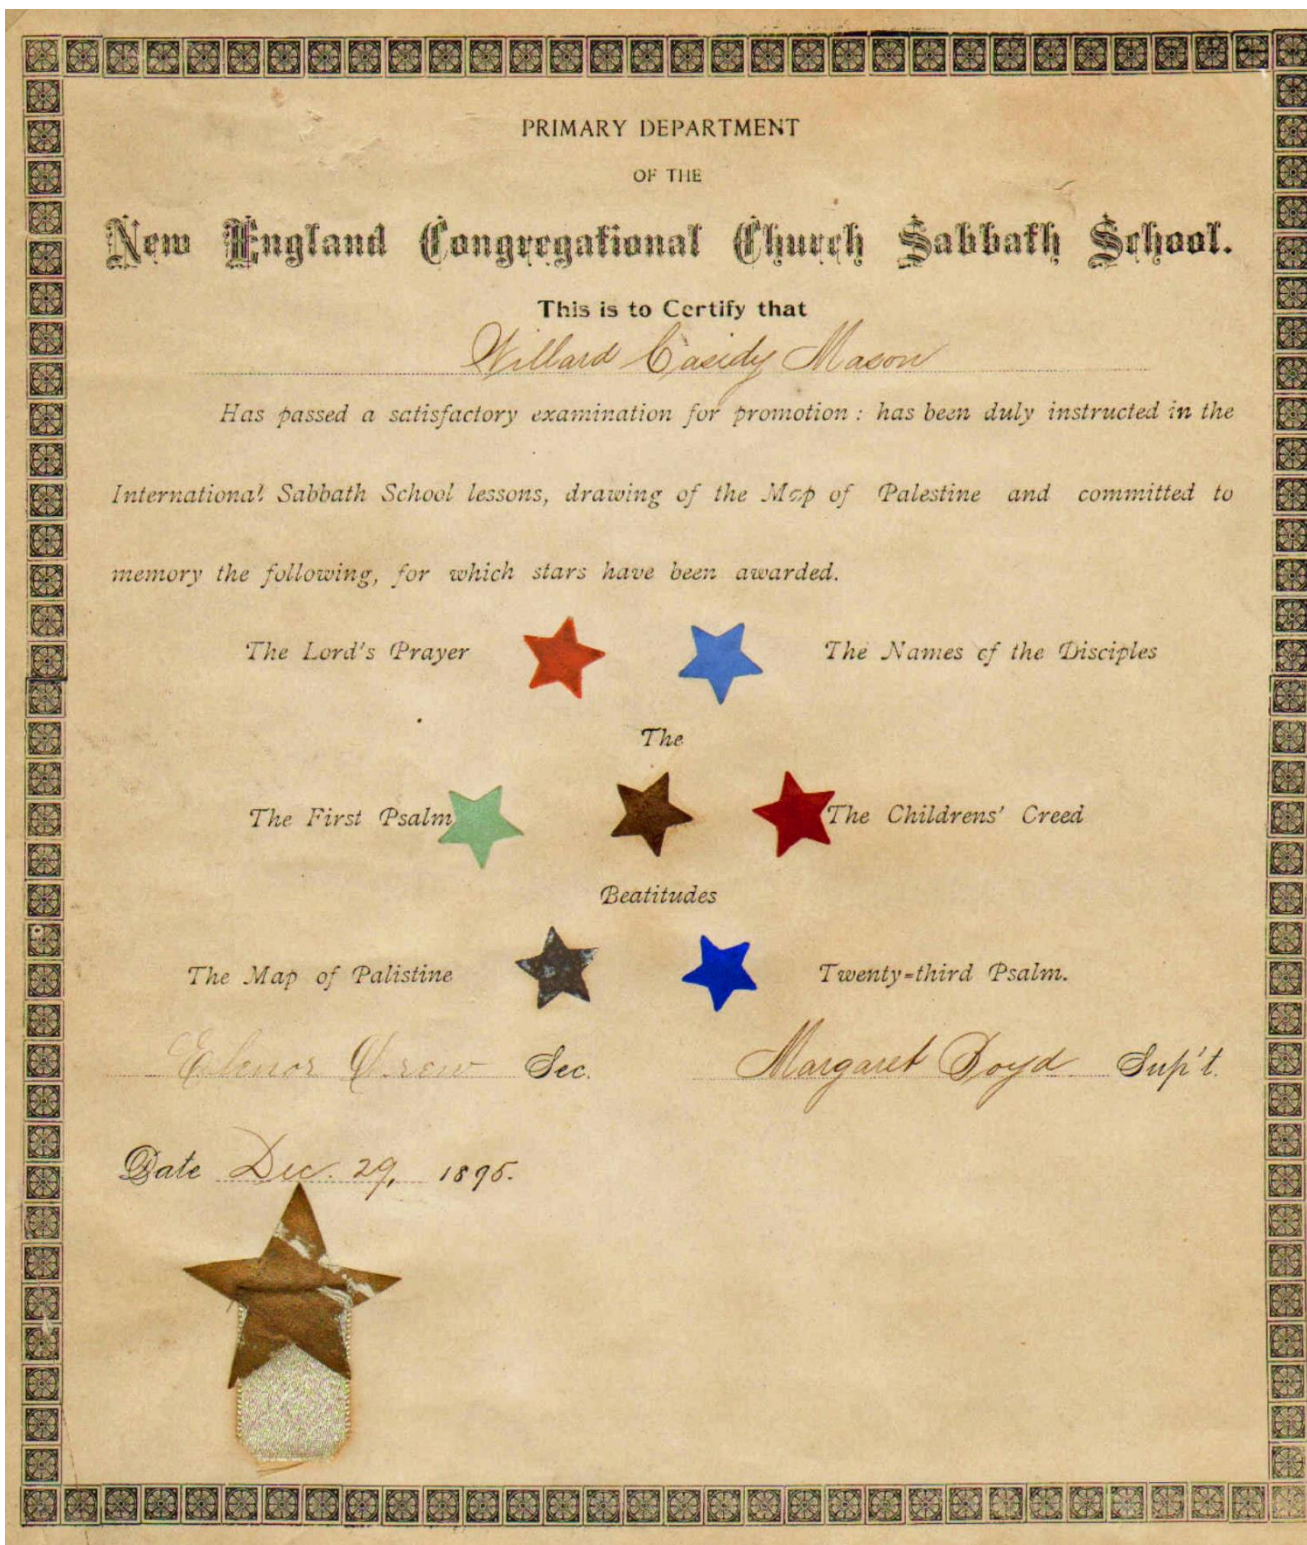 PRIMARY DEPARTMENT
OF THE
New England Congregational Church Sabbath School.
This is to Certify that
Willard Casidy Mason
Has passed a satisfactory examination for promotion : has been duly instructed in the
International Sabbath School lessons, drawing of the Map of Palestine and committed to
memory the following, for which stars have been awarded.
The Lord's Prayer The Names of the Disciples
The
The First Psalm The Childrens' Creed
Beatitudes
The Map of Palistine Twenty=third Psalm.
Elenor Drew Sec. Margaret Boyd Sup't.
Date Dec. 29, 1895.